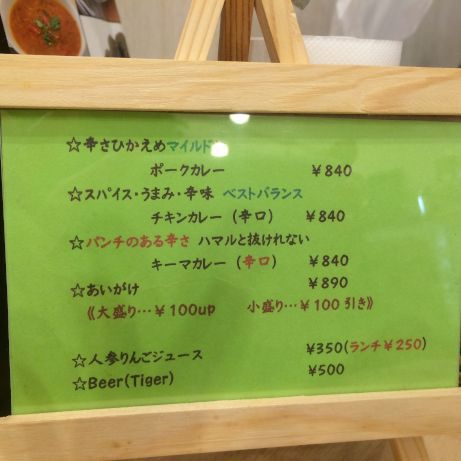 ☆辛さひかえめマイルド
ポークカレー ￥840
☆スパイス・うまみ・辛味 ベストバランス
チキンカレー（辛口） ￥840
☆パンチのある辛さ ハマルと抜けれない
キーマカレー（辛口） ￥840
☆あいがけ ￥890
《大盛り…￥100up 小盛り…￥100引き》
☆人参りんごジュース ￥350(ランチ￥250)
☆Beer(Tiger) ￥500